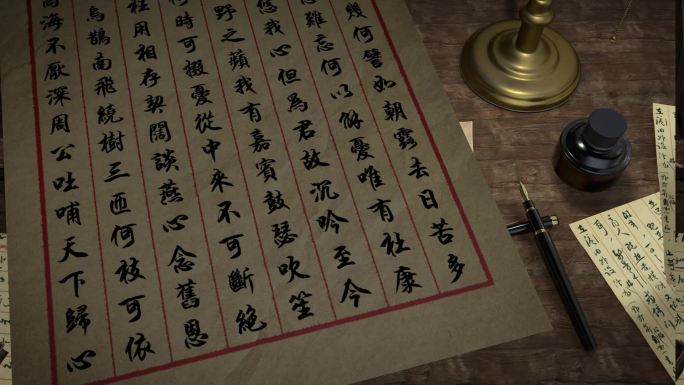 幾何譬如朝露去日苦多
難忘何以解憂唯有杜康
悠我心但為君故沉吟至今
野之蘋我有嘉賓鼓瑟吹笙
何時可掇憂從中來不可斷絕
枉用相存契闊談燕心念舊恩
烏鵲南飛繞樹三匝何枝可依
高海不厭深周公吐哺天下歸心